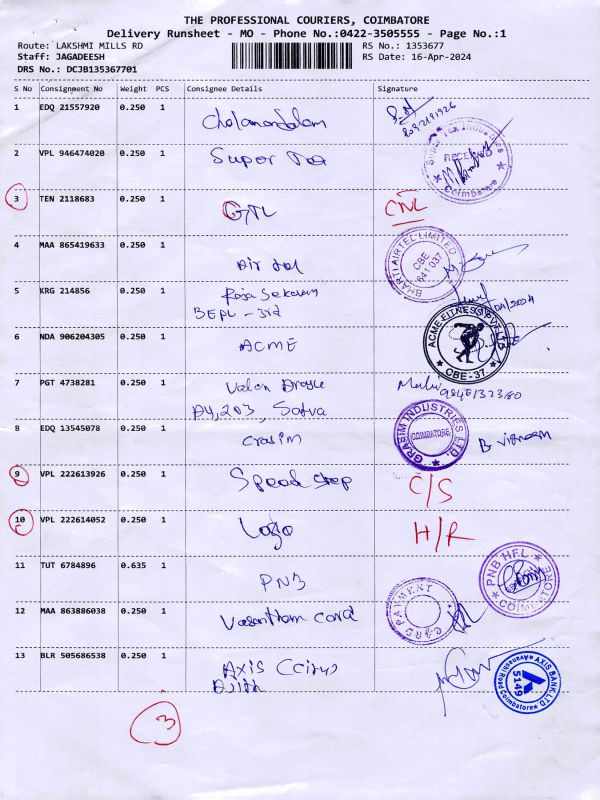 THE PROFESSIONAL COURIERS, COIMBATORE
Delivery Runsheet - MO - Phone No.:0422-3505555 - Page No.:1
Route: LAKSHMI MILLS RD RS No.: 1353677
Staff: JAGADEESH RS Date: 16-Apr-2024
DRS No.: DCJB135367701
S No Consignment No Weight PCS Consignee Details Signature
1 EDQ 21557920 0.250 1 Cholamandalam
2 VPL 946474020 0.250 1 Super Tex
Super Tex Industries RECEIVED Coimbatore
3 TEN 2118683 0.250 1 GTL CNL
4 MAA 865419633 0.250 1 Airtel
BHARTI AIRTEL LIMITED CBE 641 037
5 KRG 214856 0.250 1 Raja Sekaran
BEPL - 3rd
6 NDA 906204305 0.250 1 ACME
ACME FITNESS PVT LTD CBE-37
7 PGT 4738281 0.250 1
203,
8 EDQ 13545078 0.250 1 Grasim
GRASIM INDUSTRIES LTD. COIMBATORE
9 VPL 222613926 0.250 1 Speed step C/S
10 VPL 222614052 0.250 1 Logo H/R
11 TUT 6784896 0.635 1 PNB
PNB HFL COIMBATORE
12 MAA 863886038 0.250 1 Vasantham card
CARD PAYMENT
13 BLR 505686538 0.250 1 Axis
Ajith
AXIS BANK LTD 5149 Avanashi Road Coimbatore
3